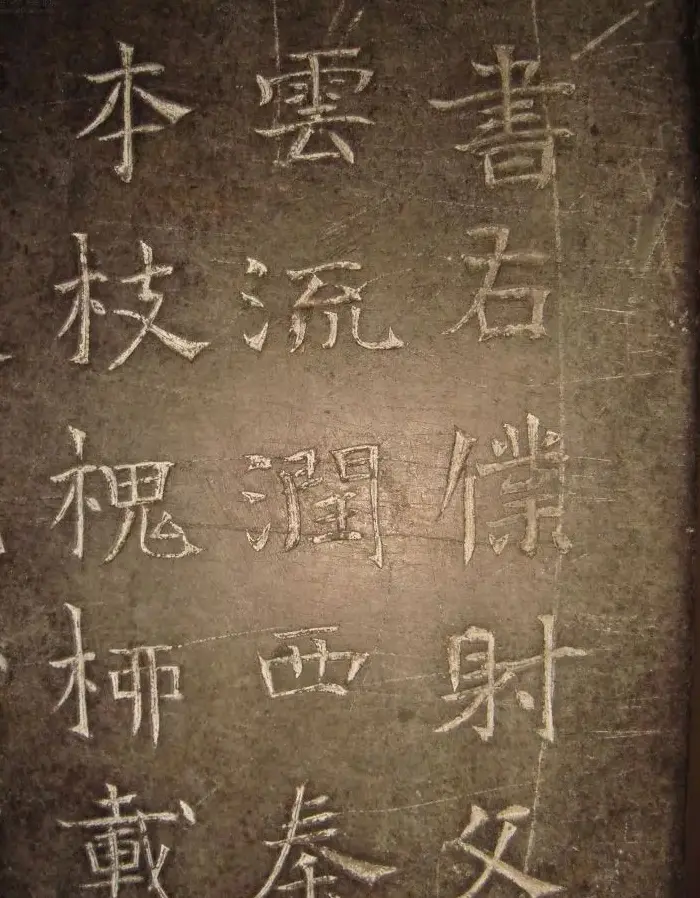 書右僕射父
雲流潤西秦
本枝槐柳載